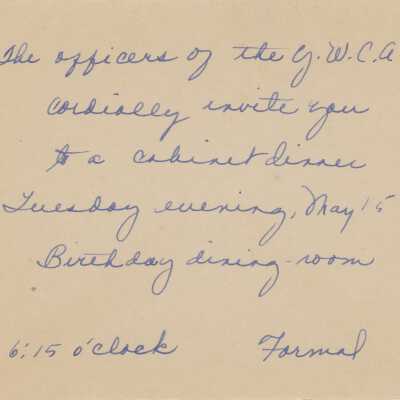 The officers of the Y.W.C.A
cordially invite you
to a cabinet dinner
Tuesday evening, May 15
Birthday dining-room
6:15 o'clock Formal